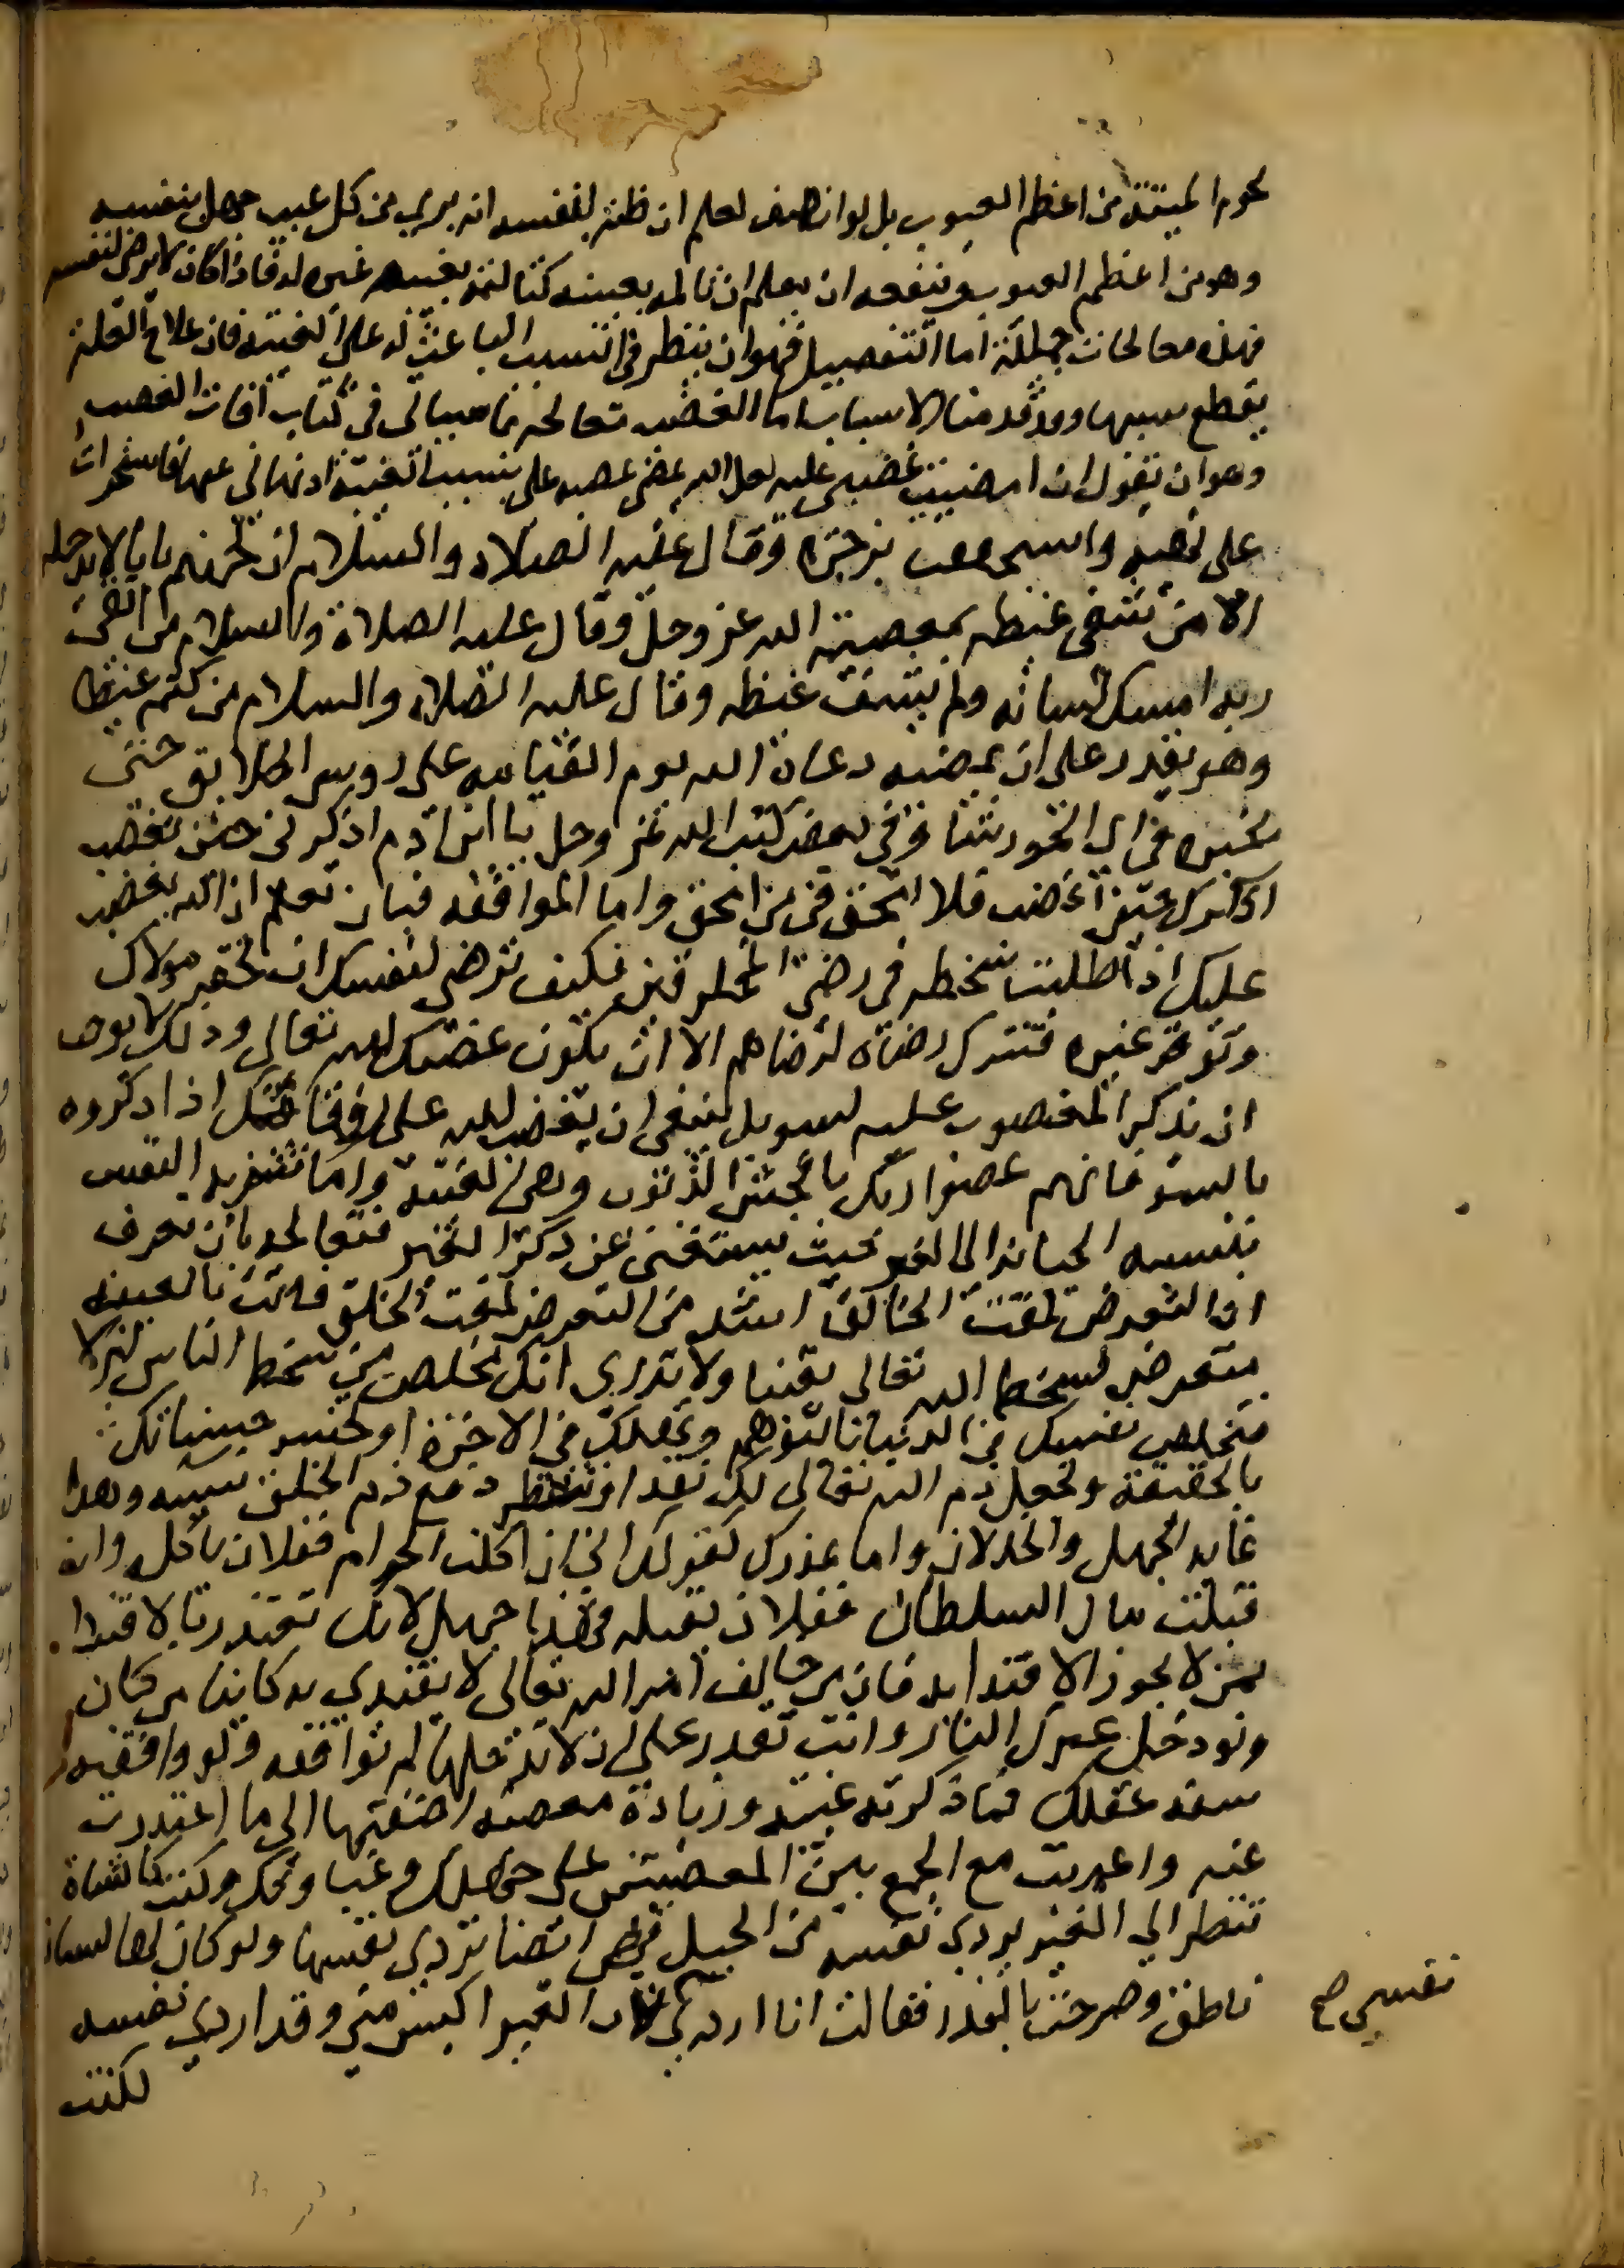 لحوم الميتة من اعظم العيوب بل لو انصف لعلم ان ظنه بنفسه انه بري من كل عيب جهل بنفسه
وهو من اعظم العيوب وينفعه ان يعلم ان تالم غيره بغيبته كتالمه بغيبه غيره له فاذا كان لا يرضى لنفسه
فهذه معالجات جملية اما التفصيل فهو ان ينظر في السبب الباعث له على الغيبة فان علاج العلة
بقطع سببها وقد قدمنا الاسباب اما الغضب فيعالجه بما سياتي في كتاب آفات الغضب
وهو ان يقول ان امضيت غضبي عليه لعل الله يمضي غضبه علي بسبب الغيبة اذ نهاني عنها فاستجرات
على نهيه واستخففت بزجره وقال عليه الصلاة والسلام ان لجهنم بابا لا يدخله
الا من شفى غيظه بمعصية الله عز وجل وقال عليه الصلاة والسلام من اتقى
ربه امسك لسانه ولم يشف غيظه وقال عليه الصلاة والسلام من كتم غيظا
وهو يقدر على ان يمضيه دعاه الله يوم القيامة على روس الخلايق حتى
يخيره في اي الحور شا وفي بعض كتب الله عز وجل يا ابن آدم اذكرني حين تغضب
اذكرك حين اغضب فلا امحقك فيمن امحق واما الموافقة فبان تعلم ان الله يغضب
عليك اذا طلبت سخطه في رضى المخلوقين فكيف ترضى لنفسك ان تحقر مولاك
وتوقر غيره فتترك رضاه لرضاهم الا ان يكون غضبك لله تعالى وذلك لا يوجب
ان تذكر المغضوب عليه بسو بل ينبغي ان تغضب لله على رفقائك اذا ذكروه
بالسو فانهم عصوا ربك بافحش الذنوب وهي الغيبة واما تنزيه النفس
بنسبه الخيانة الى الغير حيث يستغنى عن ذكر الغير فتعالجه بان تعرف
ان التعرض لمقت الخالق اشد من التعرض لمقت الخلق فانت بالغيبة
متعرض لسخط الله تعالى يقينا ولا تدري انك تخلص من سخط الناس ام لا
فتخلص نفسك في الدنيا بالتوهم وتهلك في الاخرة او تخسر حسناتك
بالحقيقة وتحصل ذم الله تعالى لك نقدا وتنتظر دفع ذم الخلق نسيه وهذا
غاية الجهل والخذلان واما عذرك كقولك اني ان اكلت الحرام ففلان ياكله وان
قبلت مال السلطان ففلان يقبله فهذا جهل لانك تعتذر بالاقتدا
بمن لا يجوز الاقتدا به فان من خالف امر الله تعالى لا يقتدي به كاينا من كان
ولو دخل غيرك النار وانت تقدر على ان لا تدخلها لم توافقه ولو وافقته
سفه عقلك فما ذكرته غيبة وزيادة معصية اضفتها الى ما اعتذرت
عنه واعدت مع الجمع بين المعصيتين على جهلك وغباوتك وكنت كالشاة
تنظر الي العنز يردي نفسه من الجبل فهي ايضا تردي نفسها ولو كان لها لسان
ناطق وصرحت بالعذر فقالت انا اردي لان العنز اكيس مني وقد اردى نفسه
نفسي صح
لكنت